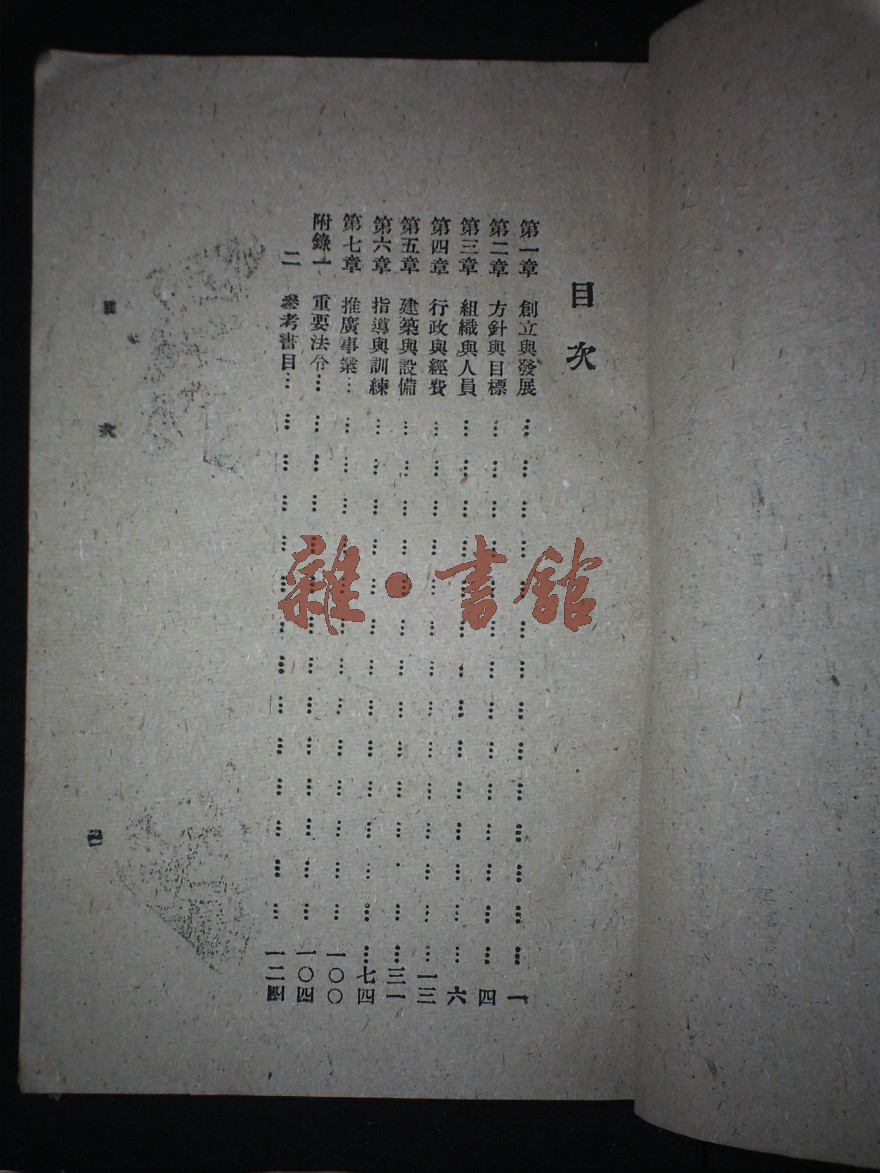 目次
第一章 創立與發展………………………………………一
第二章 方針與目標………………………………………四
第三章 組織與人員………………………………………六
第四章 行政與經費………………………………………一三
第五章 建築與設備………………………………………三一
第六章 指導與訓練………………………………………七四
第七章 推廣事業…………………………………………一〇〇
附錄一 重要法令…………………………………………一〇四
二 參考書目…………………………………………一二四
目次
雜·書館